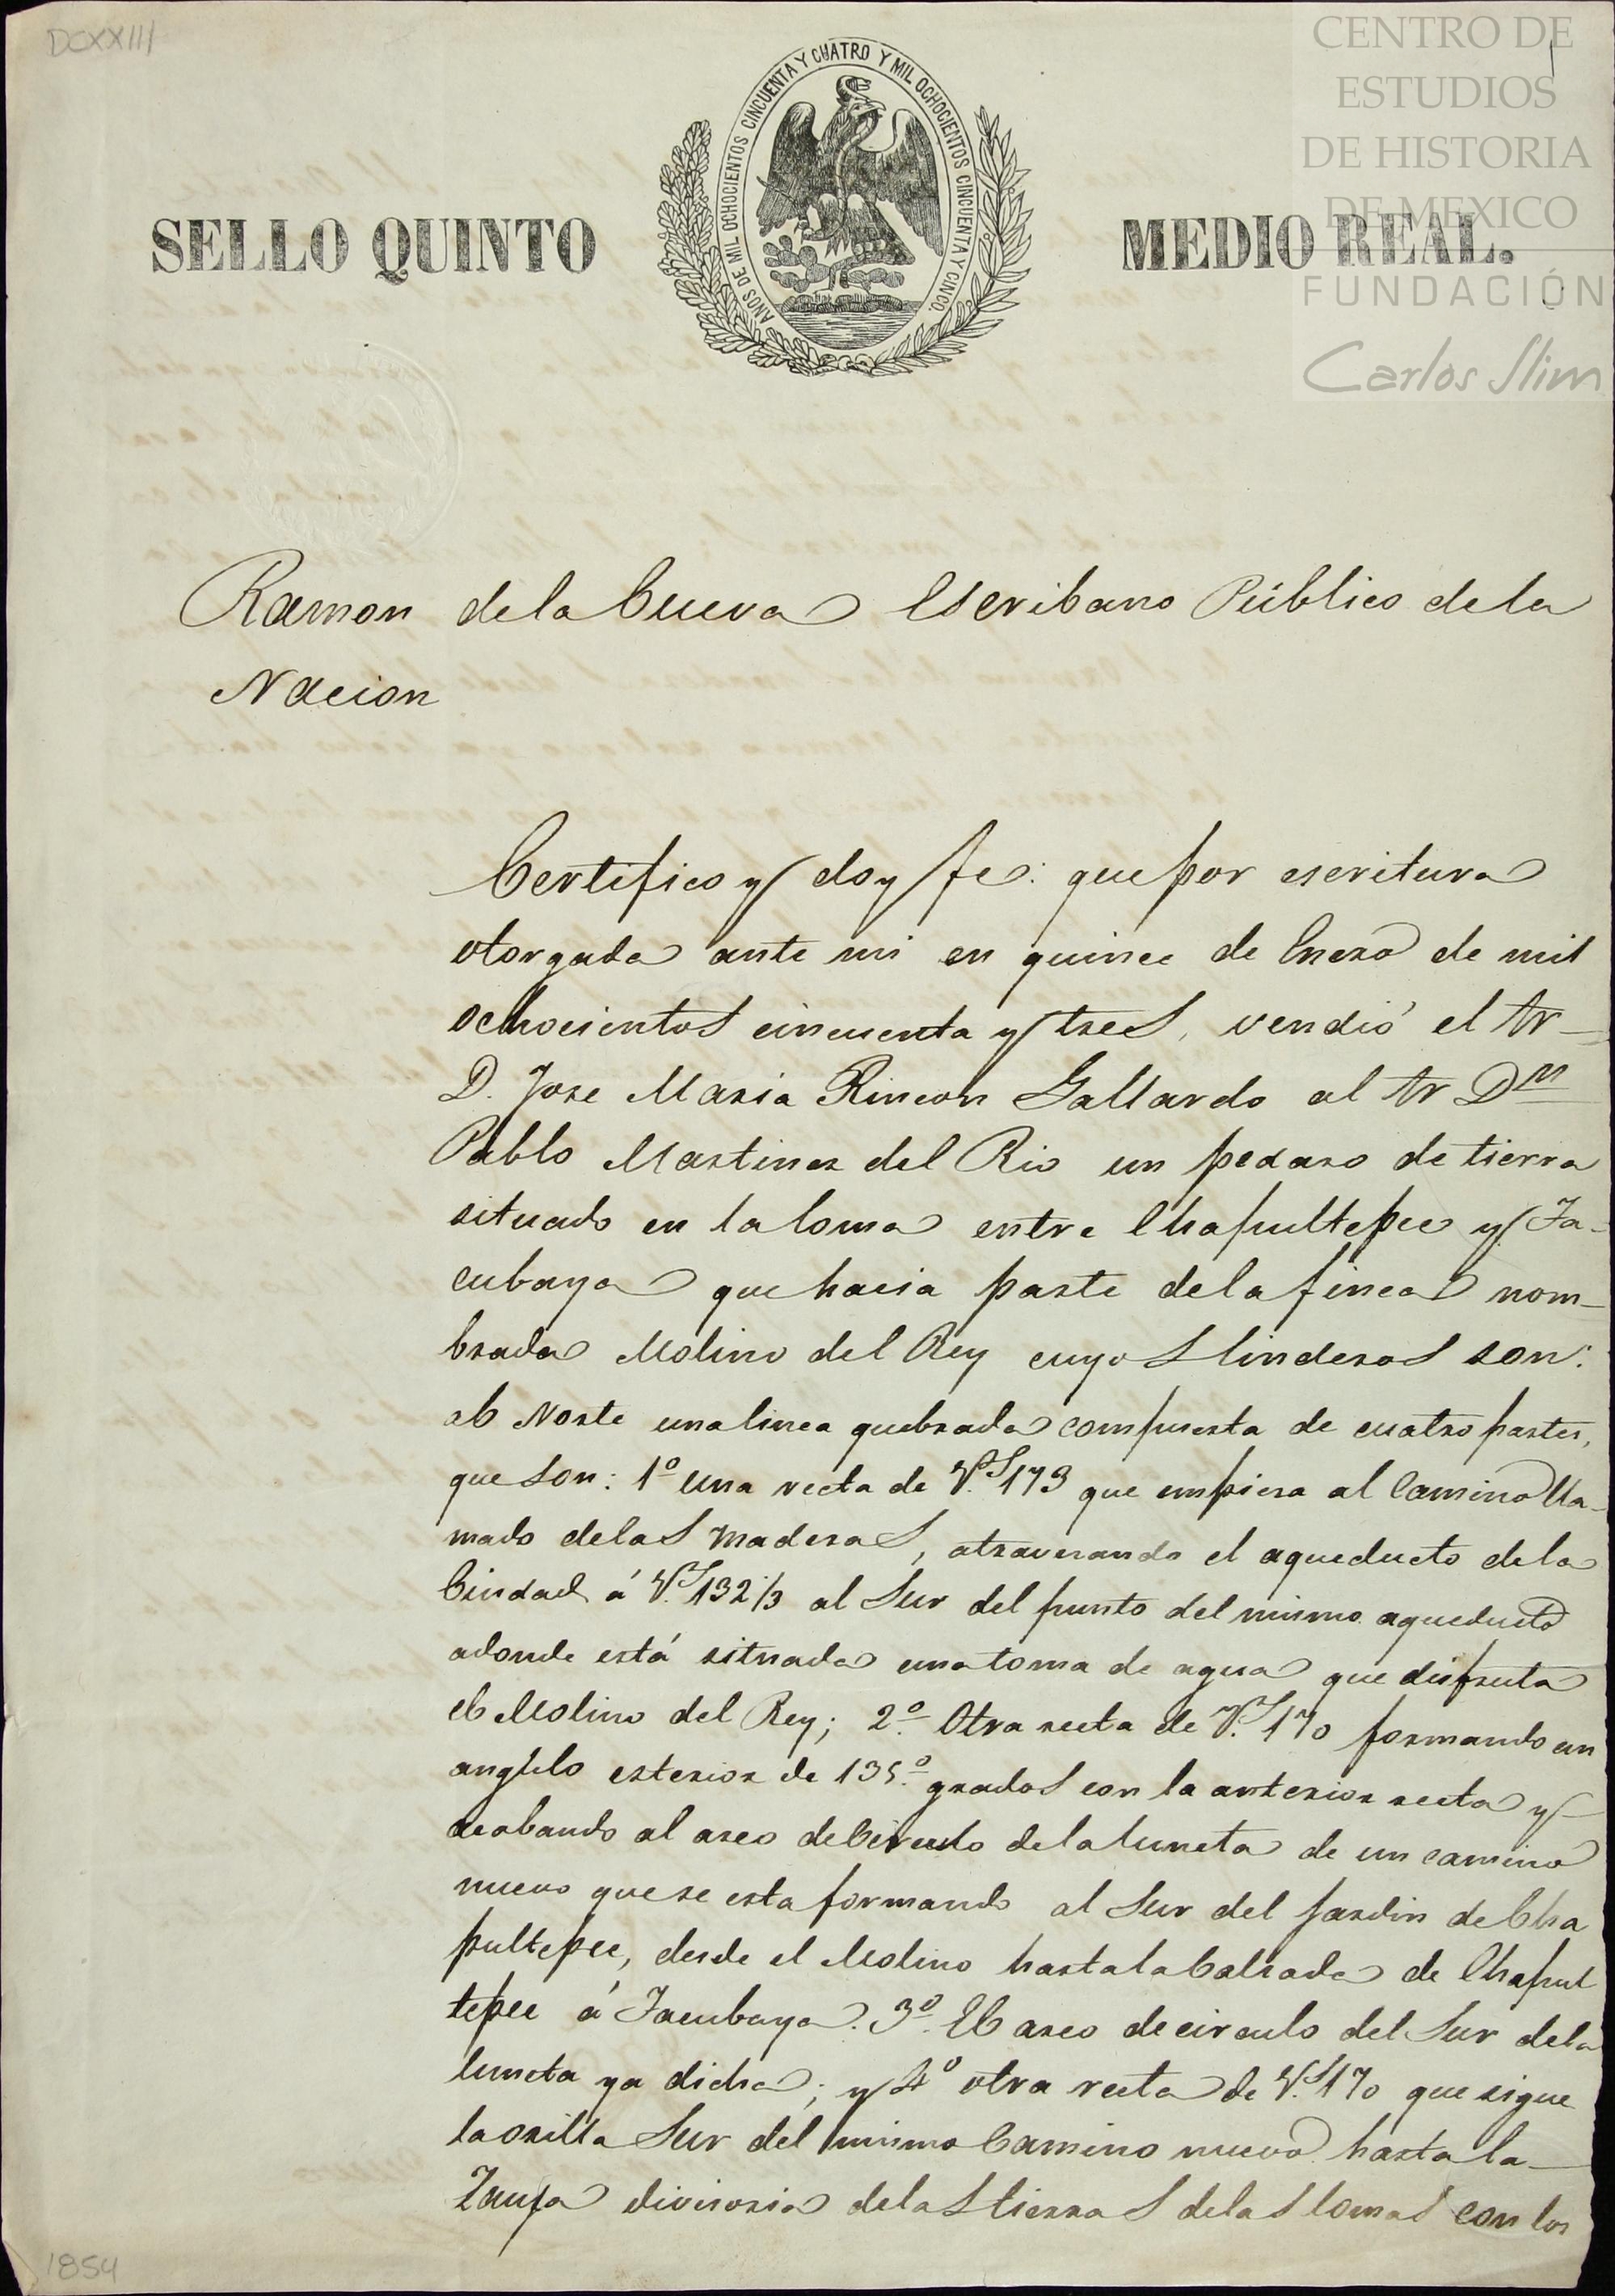 DCXXIII
1
CENTRO DE
ESTUDIOS
DE HISTORIA
DE MEXICO
FUNDACIÓN
Carlos Slim
AÑOS DE MIL OCHOCIENTOS CINCUENTA Y CUATRO Y MIL OCHOCIENTOS CINCUENTA Y CINCO.
SELLO QUINTO
MEDIO REAL.
Ramon de la Cueva Escribano Público de la
Nacion
Certifico y doy fe: que por escritura
otorgada ante mi en quince de Enero de mil
ochocientos cincuenta y tres, vendió el Sr
D. Jose Maria Rincon Gallardo al Sr Dn
Pablo Martinez del Rio un pedaso de tierra
situado en la loma entre Chapultepec y Ta-
cubaya que hacia parte de la finca nom-
brada Molino del Rey cuyos linderos son:
al Norte una linea quebrada compuesta de cuatro partes,
que son: 1º una recta de Vs. 173 que empiesa al Camino lla-
mado de las Maderas, atravesando el aqueducto de la
Ciudad á Vs. 132 1/3 al Sur del punto del mismo aqueducto
adonde está situada una toma de agua que disfruta
el Molino del Rey; 2º. Otra recta de Vs. 170 formando un
angulo esterior de 135.º grados con la anterior recta y
acabando al arco del Circulo de la luneta de un camino
nuevo que se esta formando al Sur del Jardin de Cha
pultepec, desde el Molino hasta la Calzada de Chapul
tepec á Tacubaya. 3º. El arco de circulo del Sur de la
luneta ya dicha; y 4º otra recta de Vs. 170 que sigue
la orilla Sur del mismo Camino nuevo hasta la
Zanja divisoria de las tierras de las lomas con los
1854